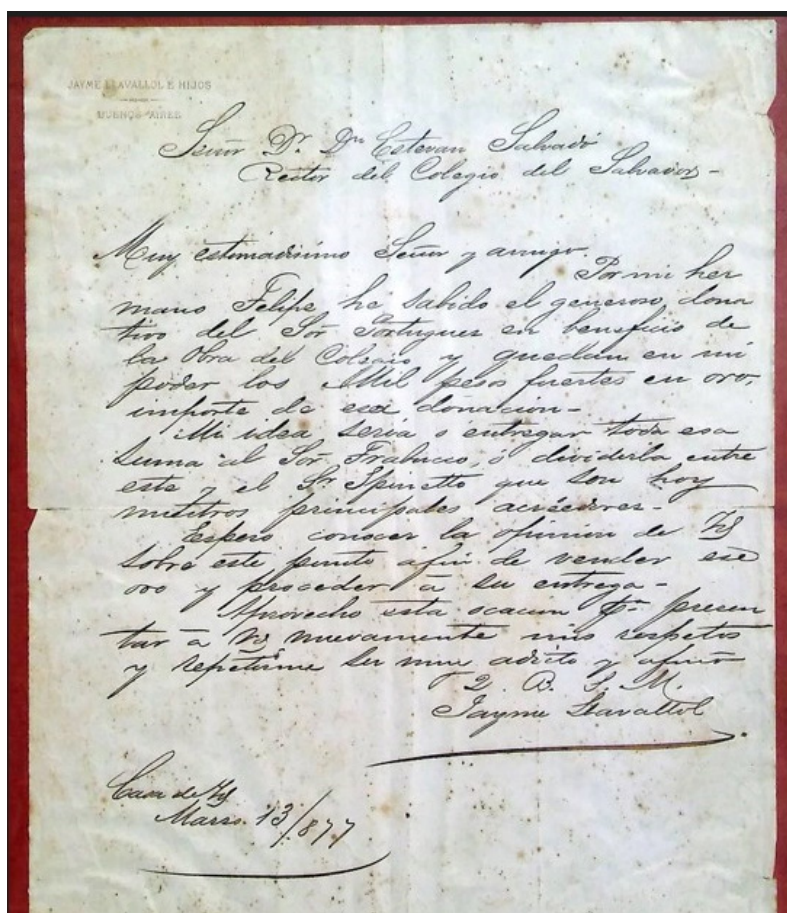 JAYME LLAVALLOL E HIJOS
BUENOS AIRES
Señor Dr. Dn Estevan Salvadó
Rector del Colegio del Salvador-
Muy estimadisimo Señor y amigo.
Por mi her
mano Felipe he sabido el generoso dona
tivo del Sor Portugues en beneficio de
la Obra del Colegio y quedan en mi
poder los Mil pesos fuertes en oro,
importe de esa donacion-
Mi idea seria ó entregar toda esa
suma al Sor Frabucco, ó dividirla entre
este y el Sr Spinetto que son hoy
nuestros principales acreedores-
Espero conocer la opinion de Vd
sobre este punto afin de vender ese
oro y proceder á su entrega-
Aprovecho esta ocacion pa presen
tar á Vd nuevamente mis respetos
y repetirme su muy adicto y afmo
Q. B. S. M.
Jayme Llavallol
Casa de Vd
Marzo 13/877